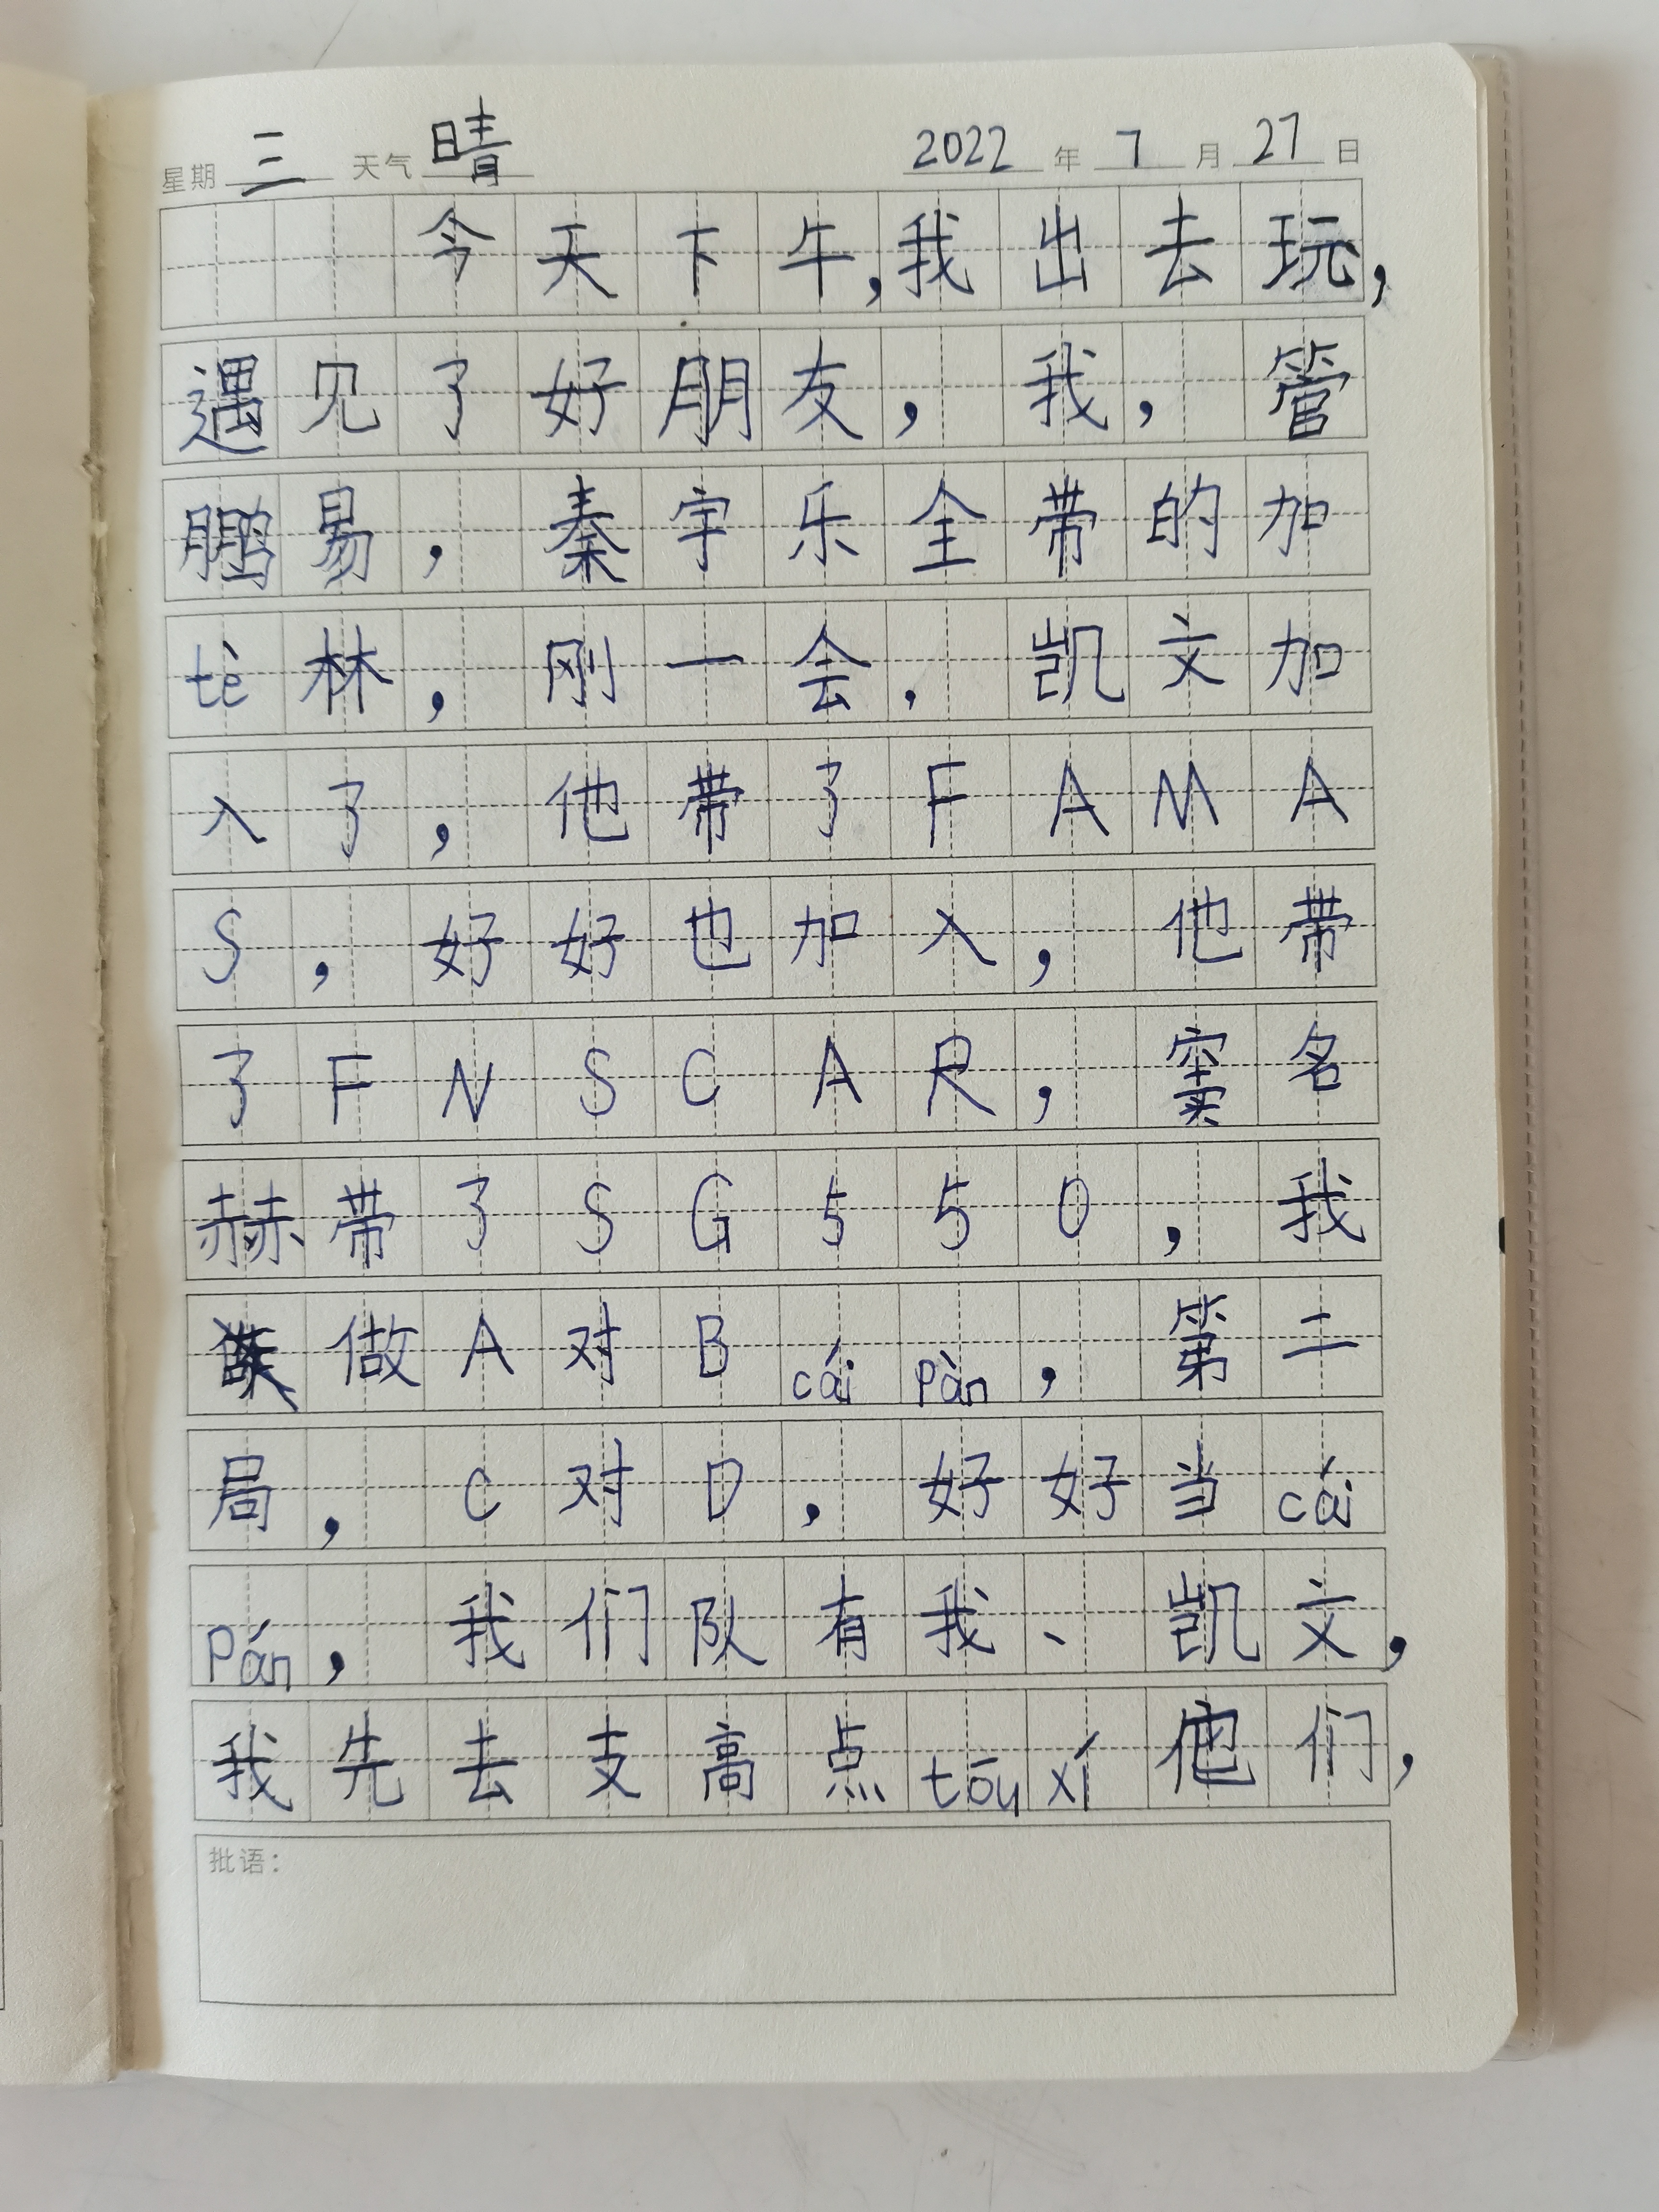 星期 三 天气 晴 2022 年 7 月 27 日
今天下午,我出去玩,
遇见了好朋友,我,管
鹏易,秦宇乐全带的加
tè林,刚一会,凯文加
入了,他带了FAMA
S,好好也加入,他带
了FNSCAR,窦名
赫带了SG550,我
做A对B cái pàn,第二
局,C对D,好好当cái
pán,我们队有我、凯文,
我先去支高点tōu xí他们,
批语: